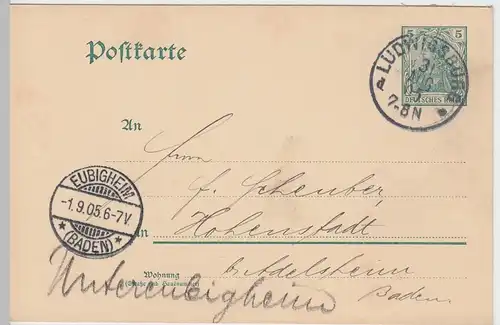 Postkarte
5 5
DEUTSCHES REICH
LUDWIGSBURG
31
AUG
05
7-8N
An
Herrn
EUBIGHEIM
-1.9.05.6-7V
(BADEN)
f. Scheuber,
in
Hohenstadt
Wohnung
(Straße und Hausnummer)
b. Adelsheim
Baden
Untereubigheim